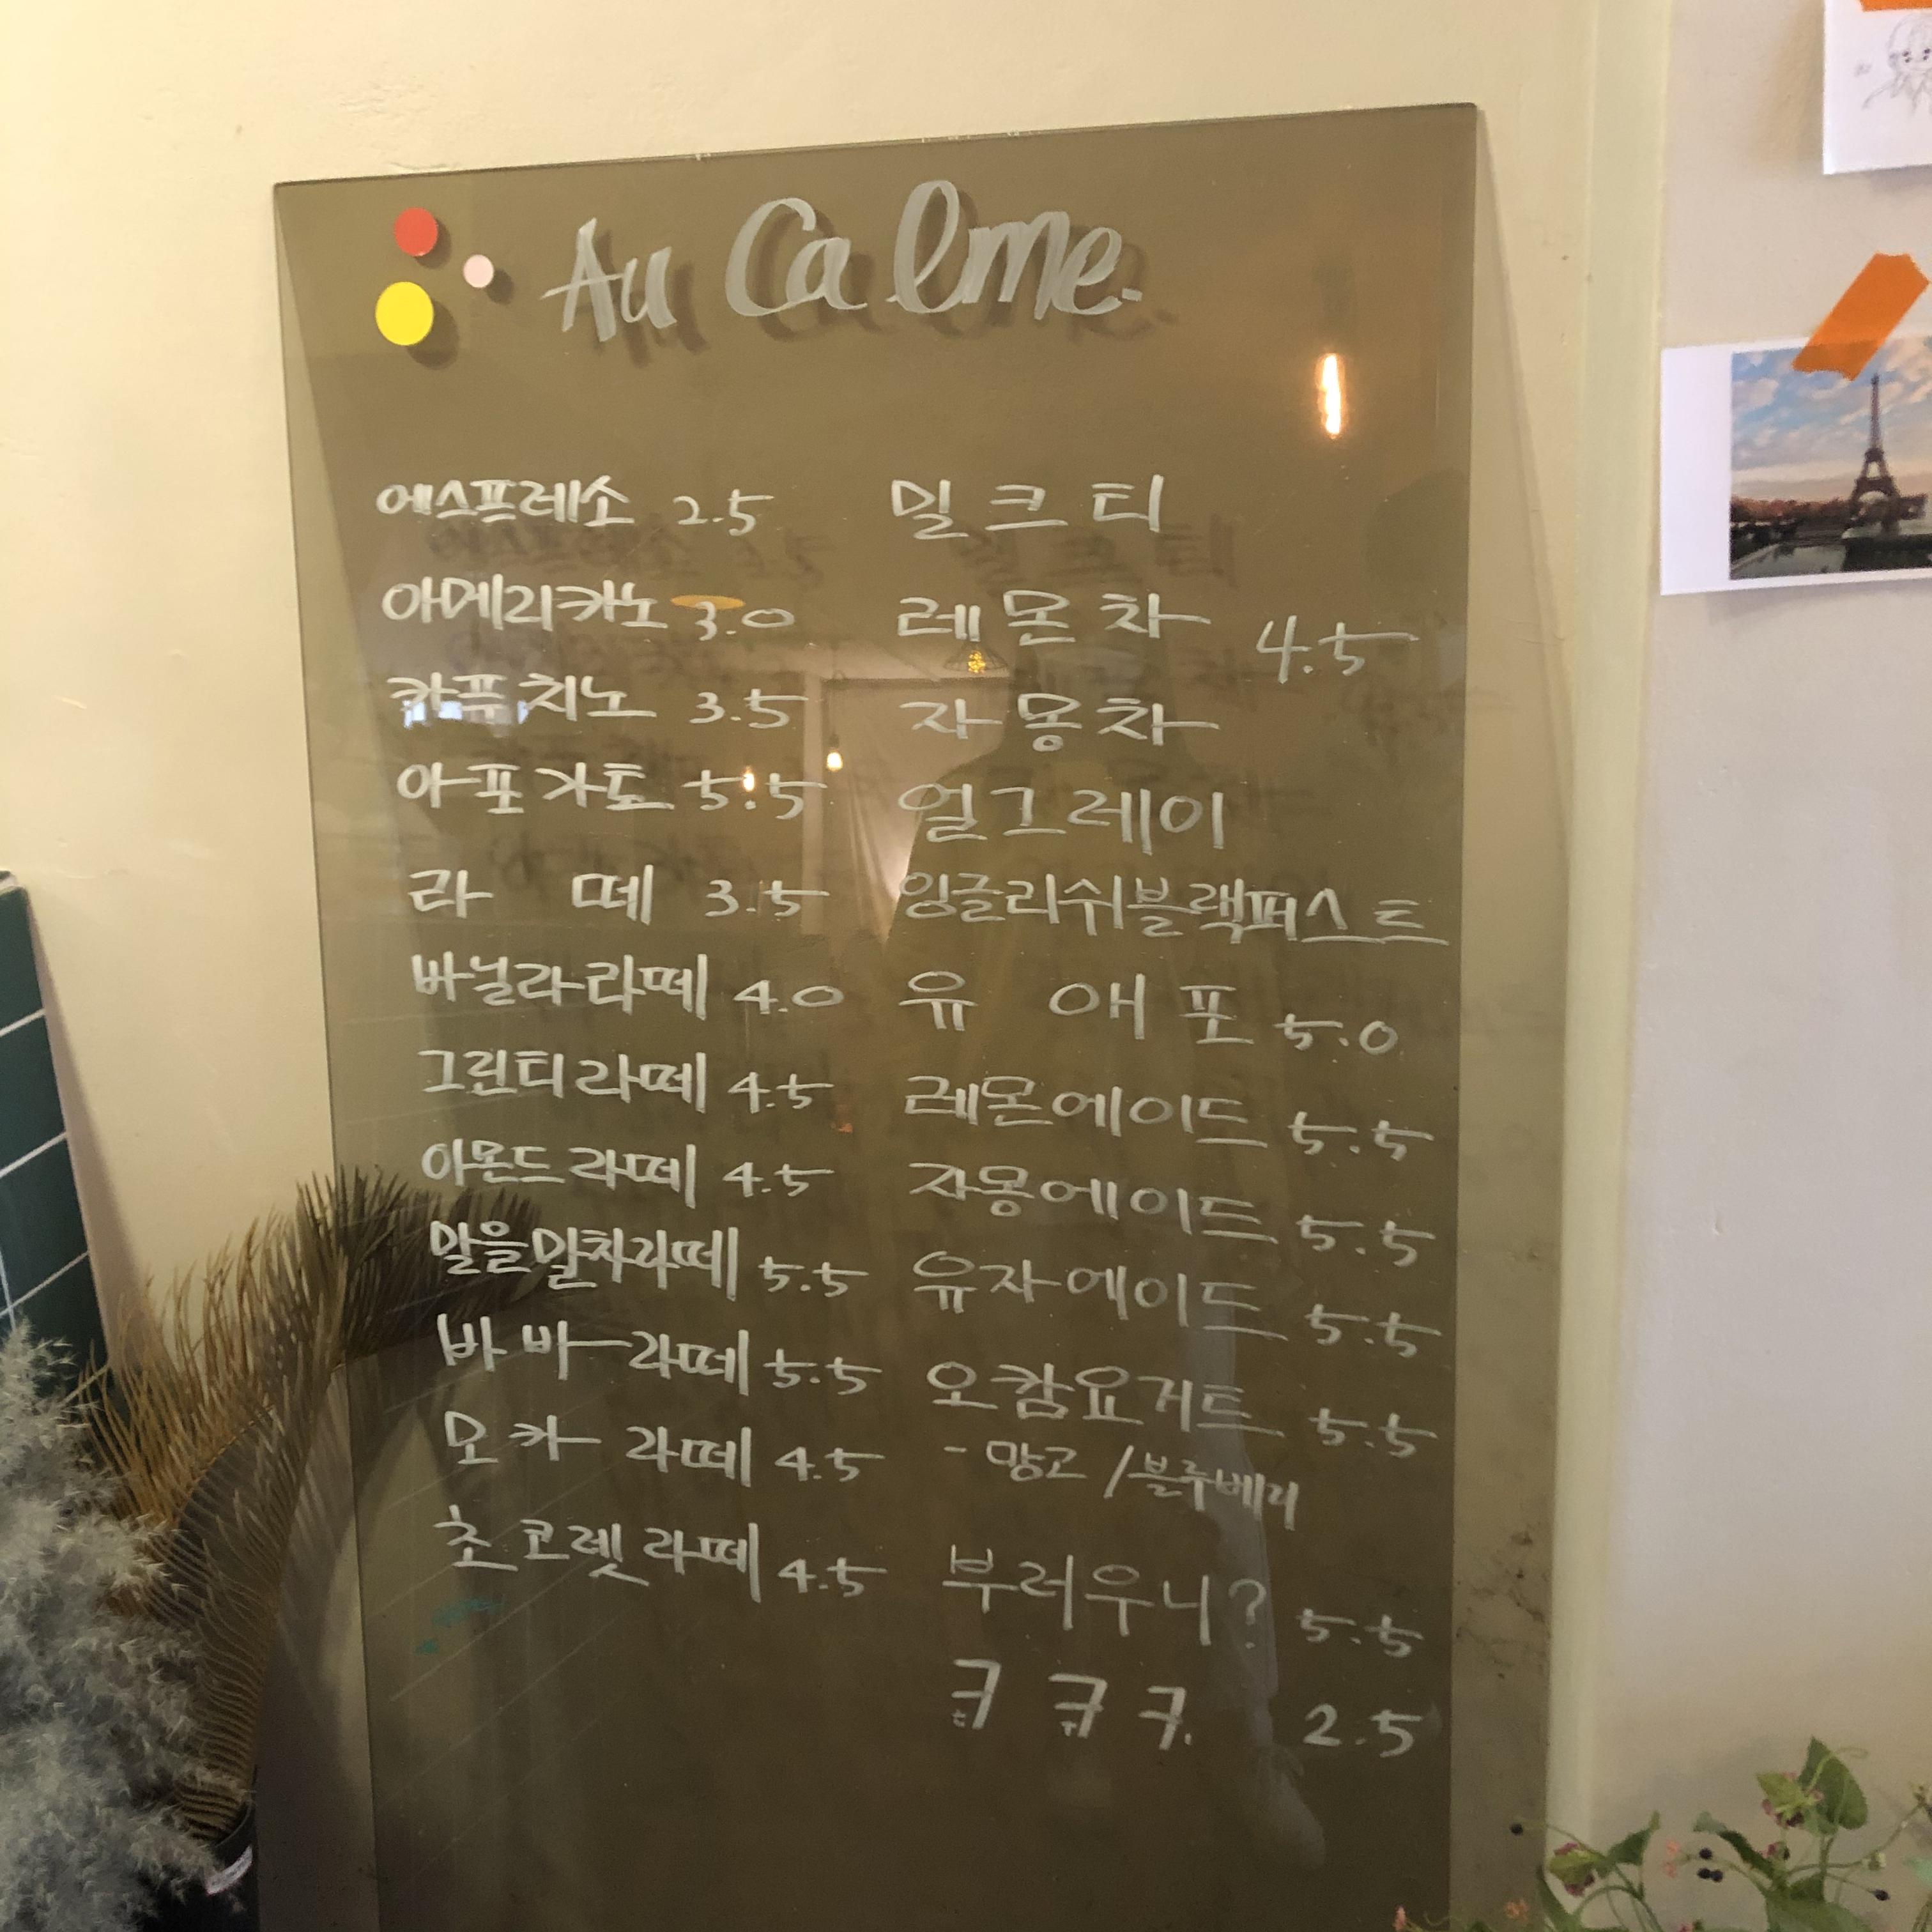 Au Calme.
에스프레소 2.5
아메리카노 3.0
카푸치노 3.5
아포가토 5.5
라떼 3.5
바닐라라떼 4.0
그린티라떼 4.5
아몬드라떼 4.5
말을말차라떼 5.5
바바라떼 5.5
모카라떼 4.5
초코렛라떼 4.5
밀크티
레몬차 4.5
자몽차
얼그레이
잉글리쉬블랙퍼스트
유애포 5.0
레몬에이드 5.5
자몽에이드 5.5
유자에이드 5.5
오캄요거트 5.5
- 망고/블루베리
부러우니? 5.5
2.5